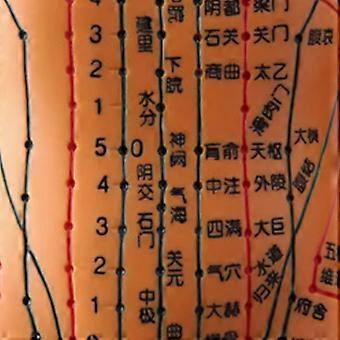 4 阴都 梁门
3 建里 石关 关门 腹哀
2 下脘 商曲 太乙
1 水分 滑肉门
5 0 神阙 肓俞 天枢 大横
4 阴交 气海 中注 外陵 腹结
3 石门 四满 大巨
2 关元 气穴 水道 归来 五
1 中极 大赫 府舍
曲